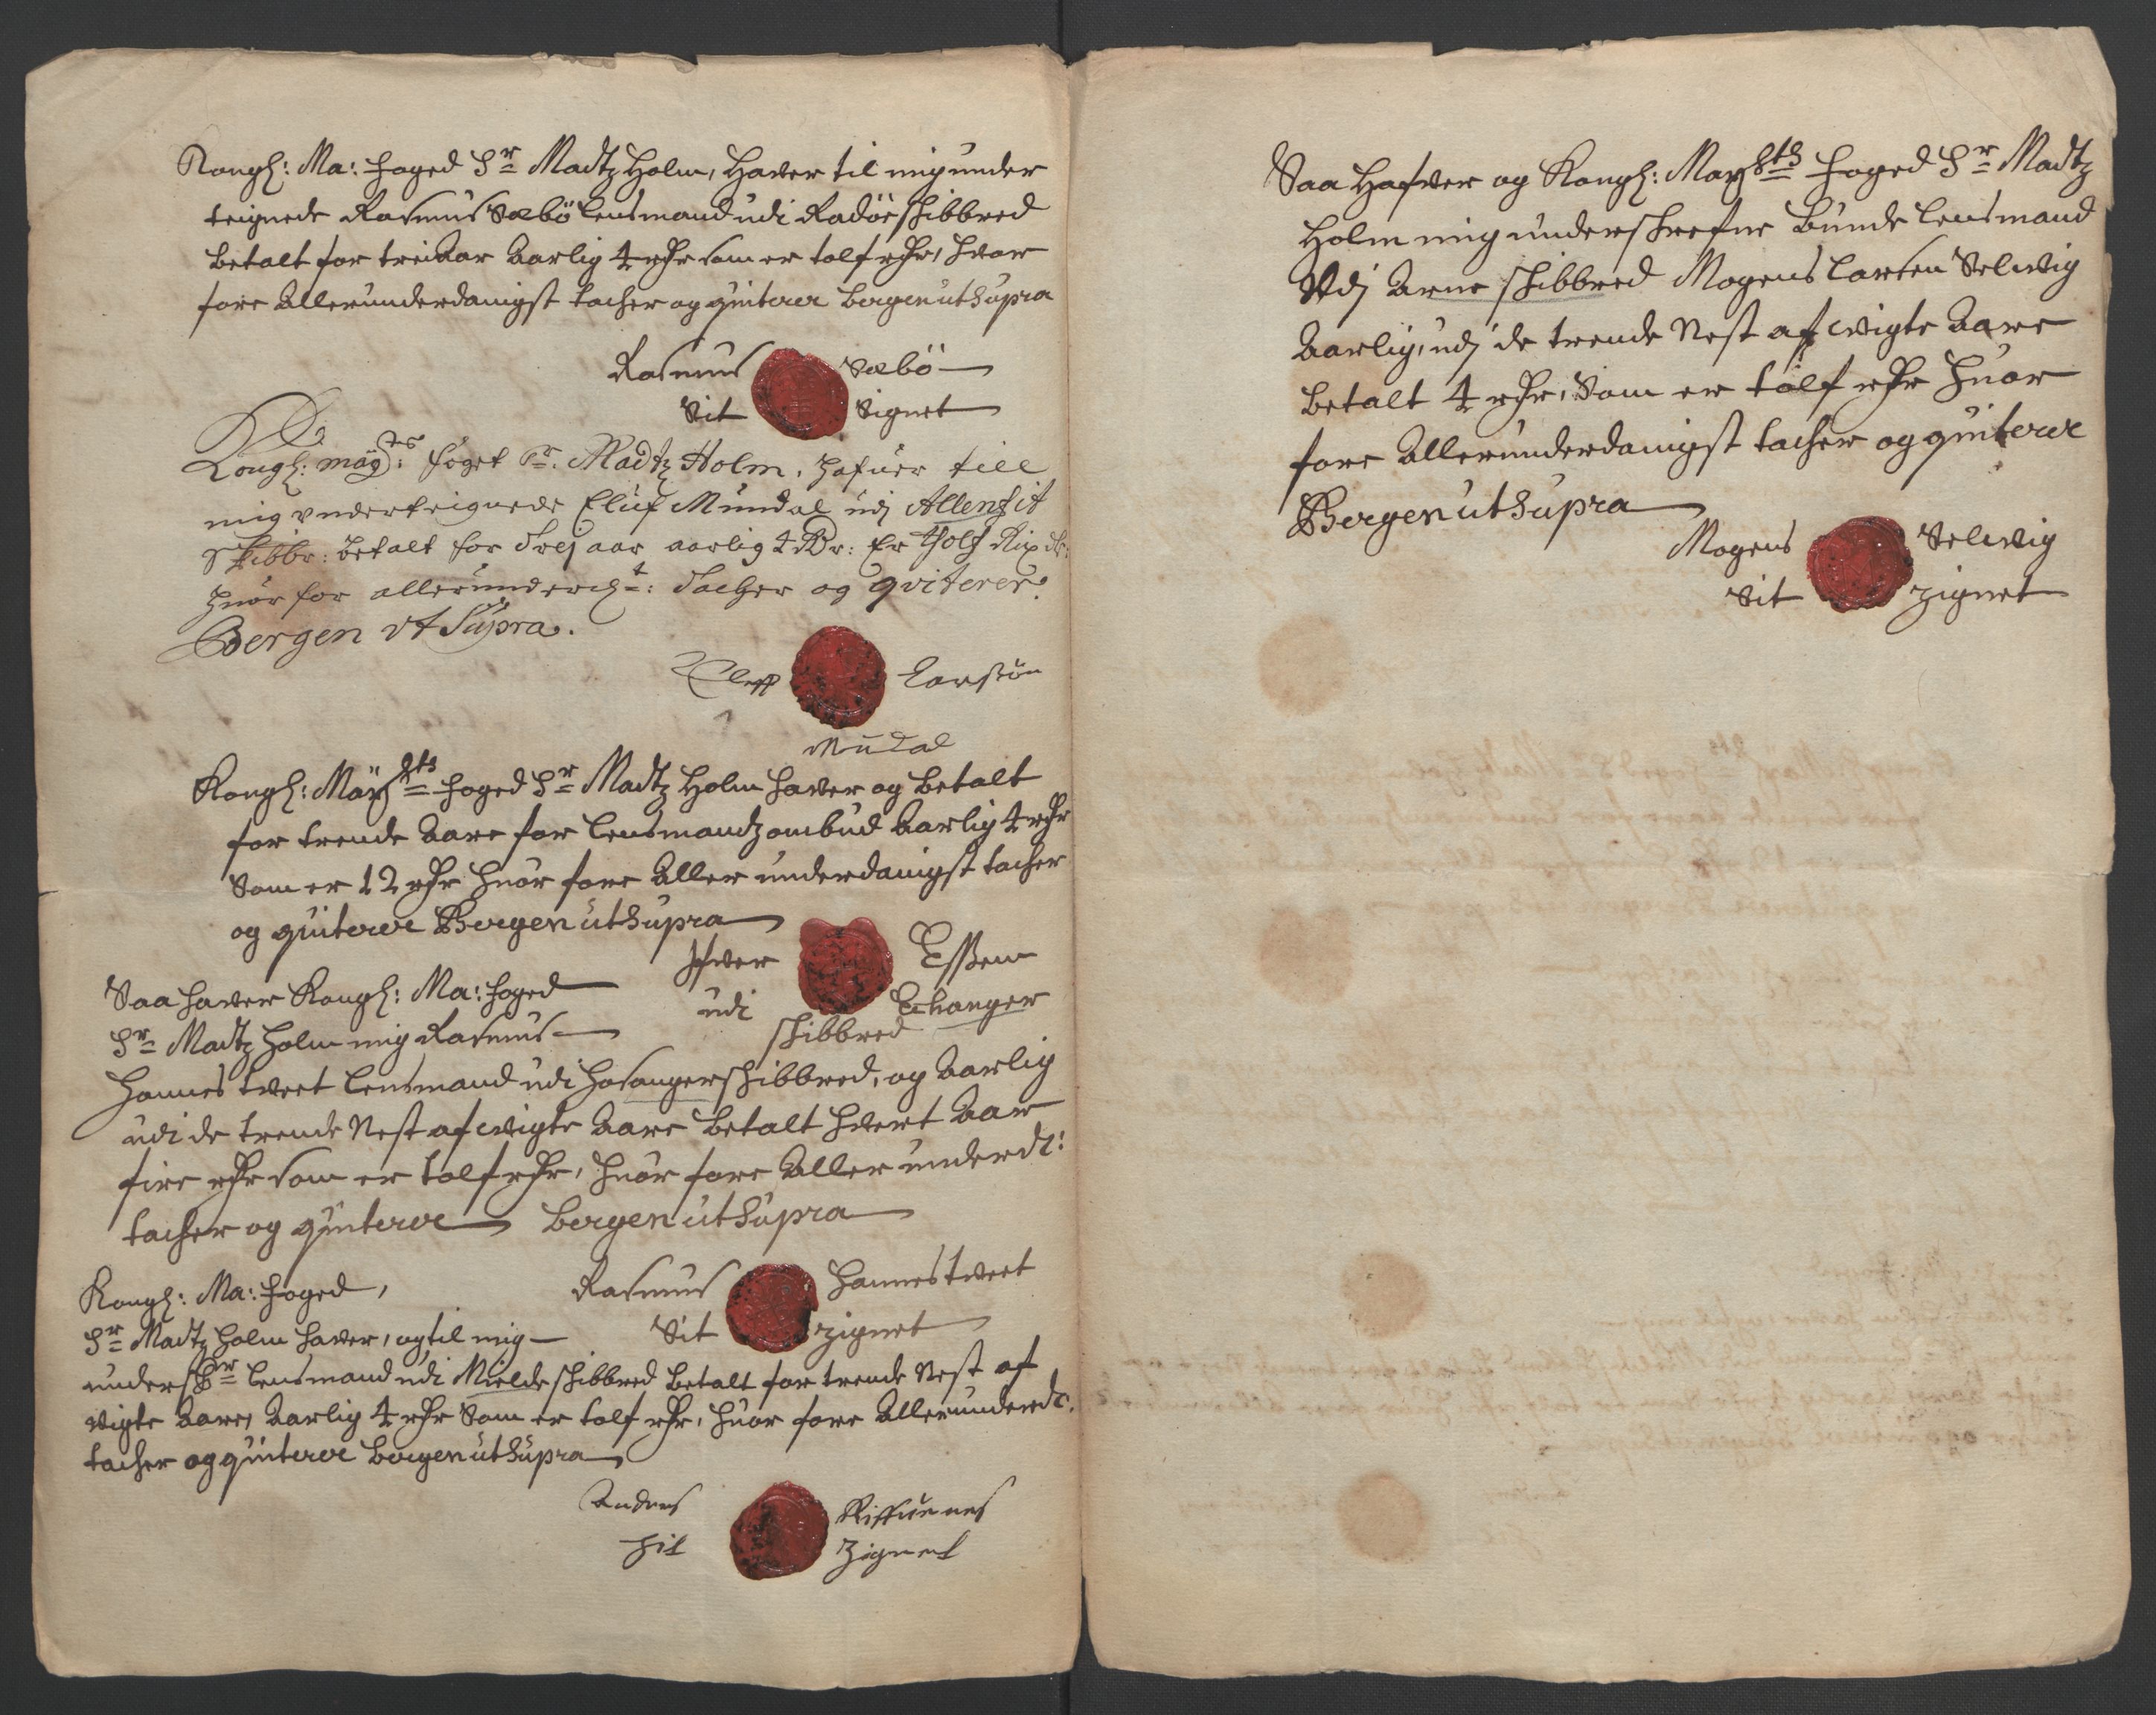 Kongl: Ma: foged Sr Madtz Holm, Hawer til mig under
teignede Rasmus Sæbö Lensmand udi Radöe skibbred
betalt for trei Aar Aarlig 4 rdr som er tolf rdr, hvor
fore Allerunderdanigst tacher og quiterer Bergen ut Supra
Rasmus Sæbö
Sit Signet
Kongl: mäyts: foget Sr. Madtz Holm, hafuer till
mig vnderteignede Eluf Mundal udj Allenfit
Skibbr: betalt for trej aar aarlig 4 Rdr: Er tholf Rix dr:
huor for allerunderdt: tacher og qviterer.
Bergen vt Supra.
Elluff Larssön
Mundal
Kongl: Mäyts foged Sr Madtz Holm hawer og betalt
for trende Aare for Lensmandz ombud Aarlig 4 rdr
Som er 12 rdr huor fore Aller underdanigst tacher
og quiterer Bergen ut Supra
Ifwer Essem
udi Echanger
skibbred
Saa hawer Kongl: Ma: foged
Sr Madtz Holm mig Rasmus
Hannestweet Lensmand udi Hosanger skibbred, og Aarlig
udi de trende Nest afwigte Aare betalt hwert Aar
fire rdr som er tolf rdr, huor fore Aller underd:
tacher og quiterer Bergen ut Supra
Rasmus Hannestweet
Sit zignet
Kongl: Ma: foged,
Sr Madtz Holm hawer, og til mig
underskr Lensmand udi Mielde skibbred betalt for trende Nest af
wigte Aare, Aarlig 4 rdr Som er tolf rdr, huor fore Allerunderd:
tacher og quiterer Bergen ut Supra
Anders Riffuenes
hit Zignet
Saa Hafwer og Kongl: Mayts foged Sr Madtz
Holm mig underskrefne Bunde Lensmand
Udj Arne skibbred Mogens Larsen Selwig
Aarlig, udj de trende Nest afwigte Aare
betalt 4 rdr, Som er tolf rdr huor
fore Allerunderdanigst tacher og quiterer
Bergen ut Supra
Mogens Selwig
Sit zignet